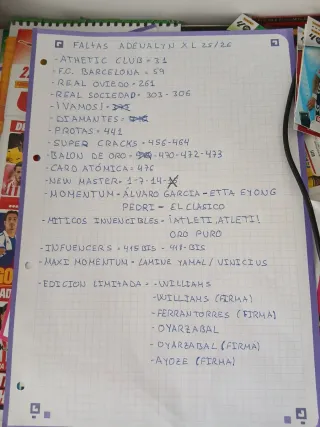 FALTAS ADRENALYN XL 25/26
- ATHETIC CLUB = 31
- F.C. BARCELONA = 59
- REAL OVIEDO = 261
- REAL SOCIEDAD = 303 - 306
- ¡VAMOS! =
- DIAMANTES =
- PROTAS = 441
- SUPER CRACKS = 456-464
- BALON DE ORO = -470-472-473
- CARD ATÓMICA = 476
- NEW MASTER = 1-7-14-
- MOMENTUM = ÁLVARO GARCIA - ETTA EYONG
PEDRI - EL CLASICO
- MITICOS INVENCIBLES = ¡ATLETI, ATLETI!
ORO PURO
- INFUENCERS = 415 BIS - 441 BIS
- MAXI MOMENTUM = LAMINE YAMAL / VINICIUS
- EDICION LIMITADA = - WILLIAMS
- WILLIAMS (FIRMA)
- FERRAN TORRES (FIRMA)
- OYARZABAL
- OYARZABAL (FIRMA)
- AYOZE (FIRMA)